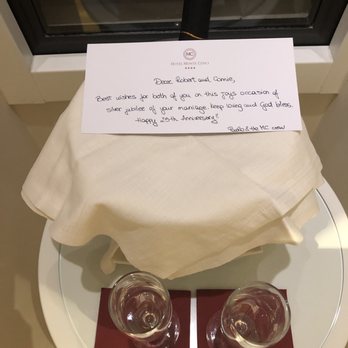 MC
HOTEL MONTE CENO
Dear Robert and Connie,
Best wishes for both of you on this joys occasion of
silver jubilee of your marriage. keep loving and God bless.
Happy 25th Anniversary!
& the MC crew